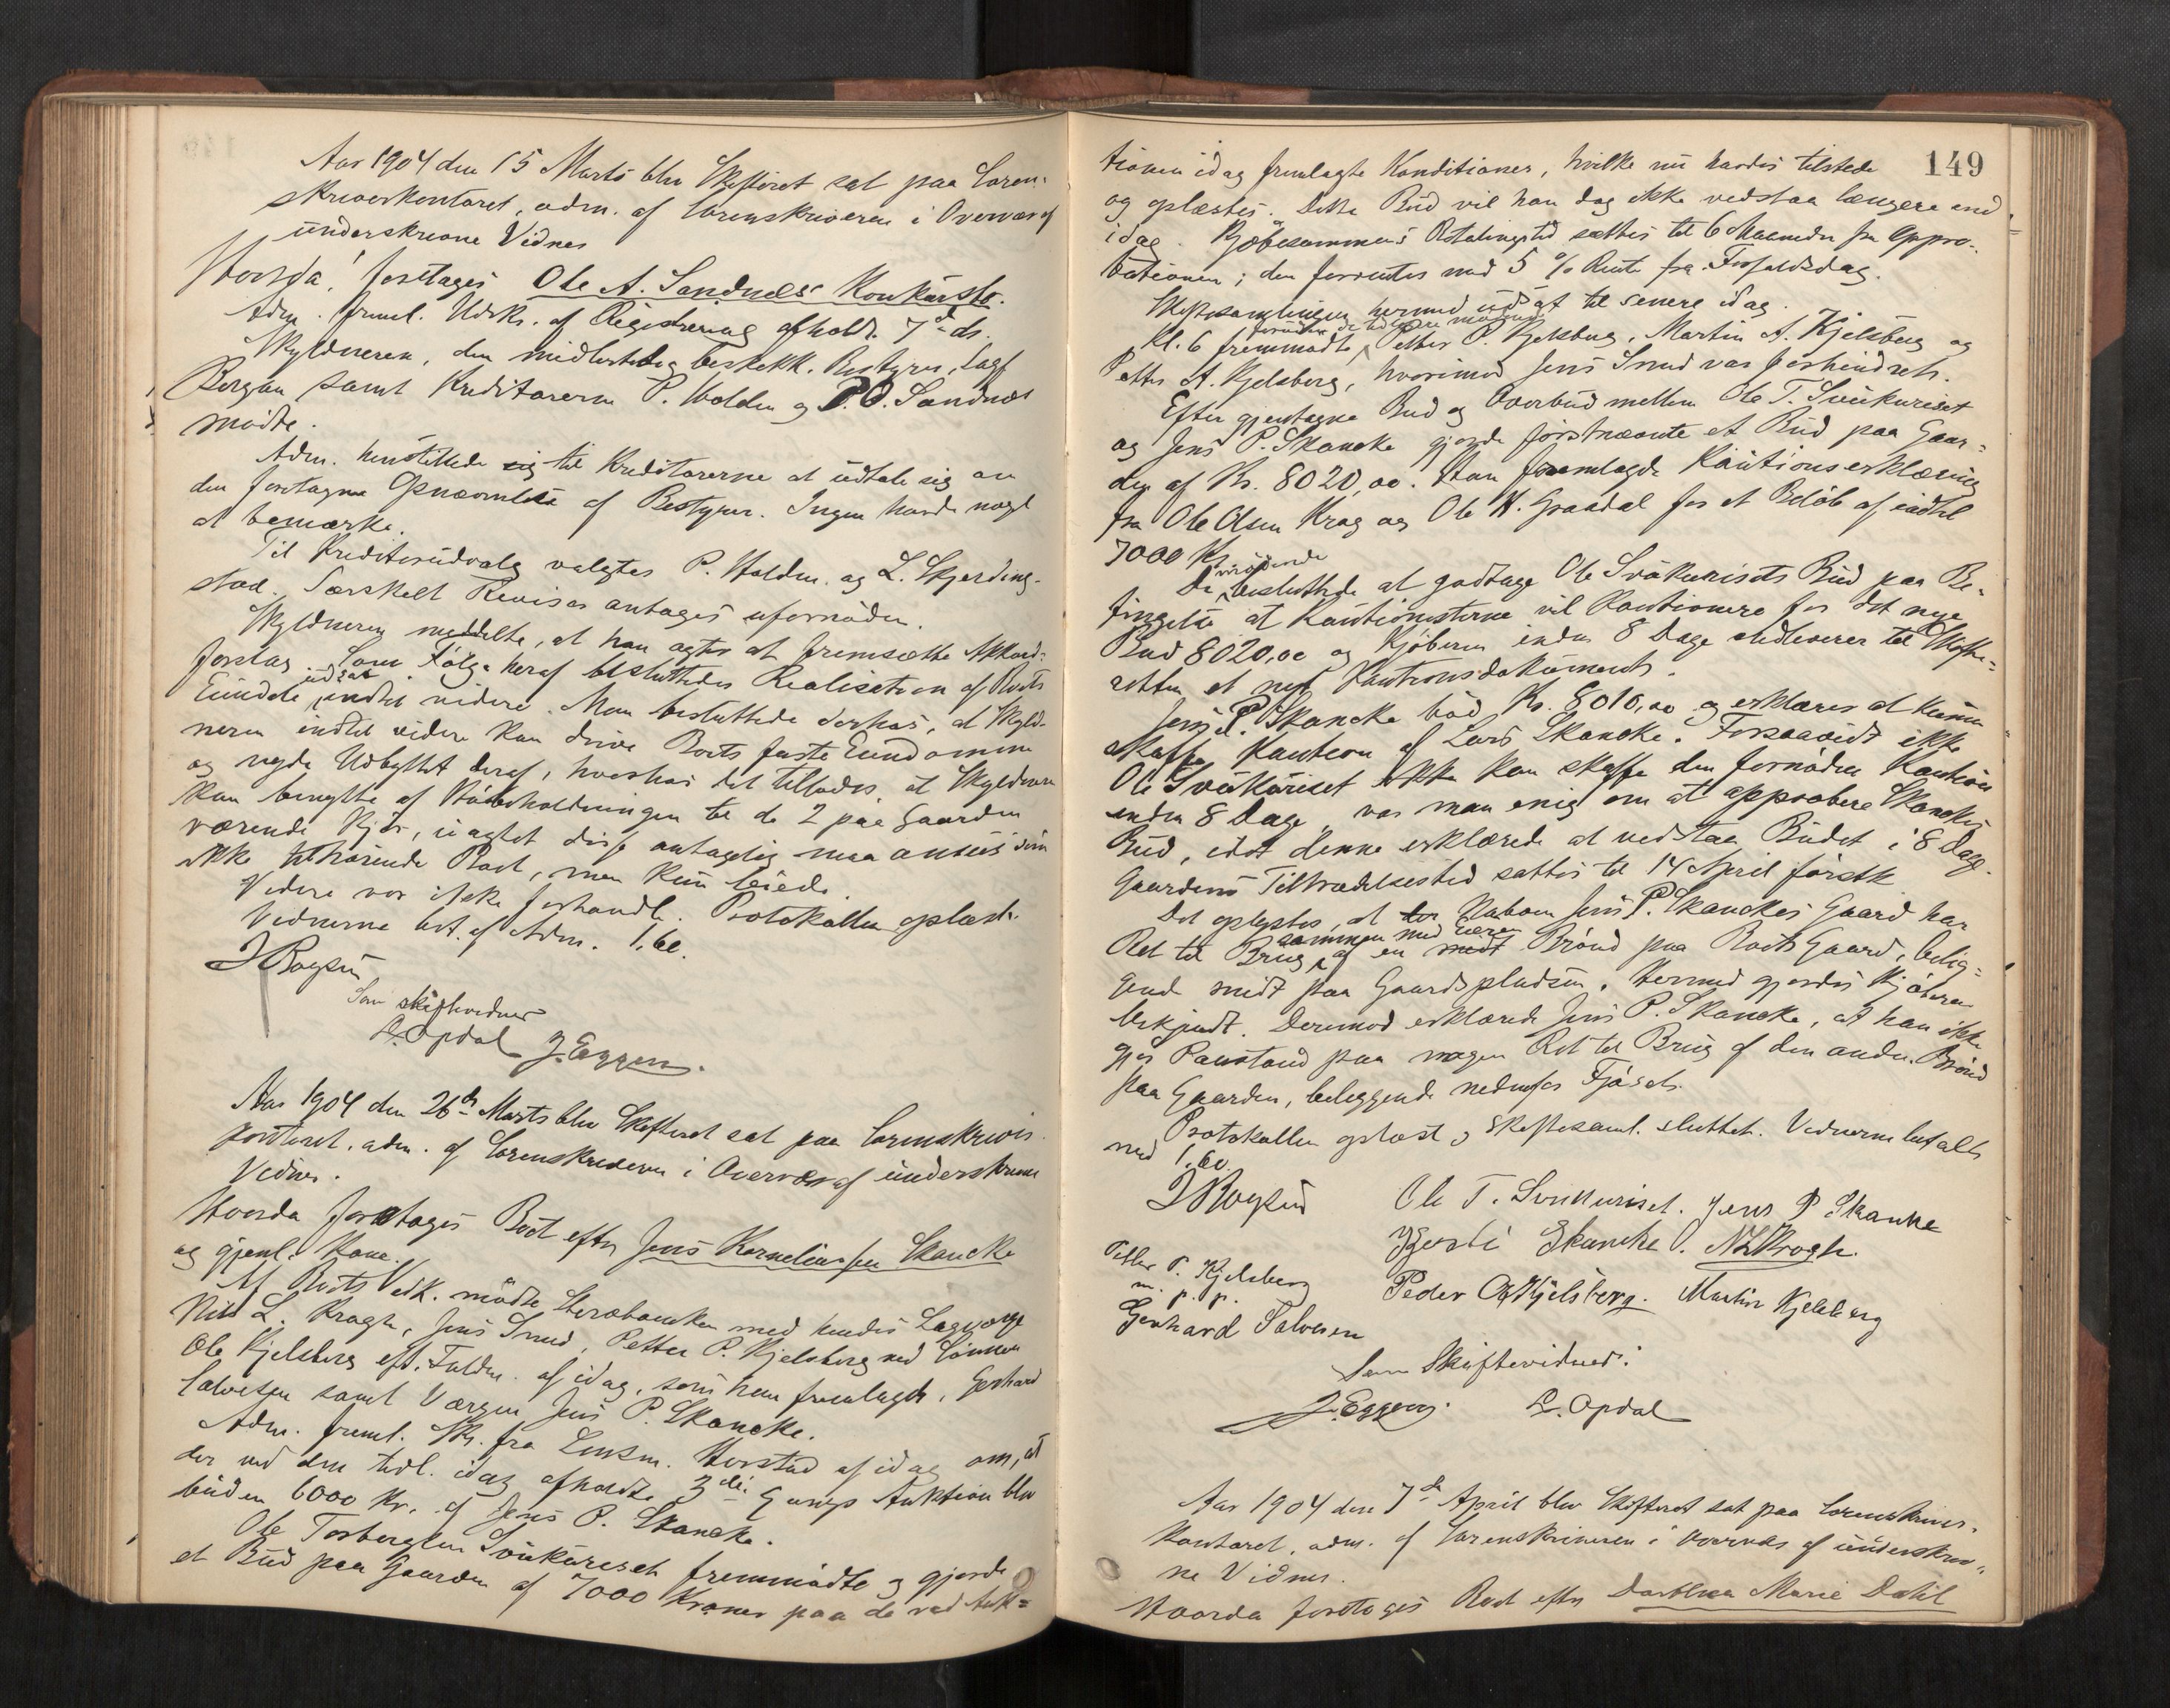 Aar 1904 den 15 Marts blev Skifteret sat paa Soren-
skriverkontoret, adm. af Sorenskriveren i Overvær af
underskrevne Vidner
Hvorda! foretages Ole A. Sandnes' Konkursbo.
Adm. freml. Udskr. af Registrering afholdt 7de ds.
Skyldneren, den midlertidig beskikk. Bestyrer, Sagf
Bergan samt Kreditorerne P. Holden og P. O. Sandnes
mødte.
Adm. henstillede sig til Kreditorerne at udtale sig om
den foretagne Opnævnelse af Bestyrer. Ingen havde noget
at bemærke.
Til Kreditorudvalg valgtes P. Holden og L. Skjerding-
stad. Særskilt Revisor antages ufornøden.
Skyldneren meddelte, at han agter at fremsætte Akkord-
forslag. Som Følge heraf besluttedes Realisation af Boets
Eiendele udsat indtil videre. Man besluttede derhos, at Skyld-
neren indtil videre kan drive Boets faste Eiendomme
og nyde Udbyttet deraf, hvorhos det tillodes, at Skyldneren
kan benytte af Foderbeholdningen til de 2 paa Gaarden
værende Kjør, uagtet disse antagelig maa ansees som
ikke tilhørende Boet, men kun leiede.
Videre var ikke forhandl. Protokollen oplæst.
Vidnerne bet. af Adm. 1.60.
J Rogstad
Som skiftevidner
L. Opdal J. Eggen.
Aar 1904 den 26de Marts blev Skifteret sat paa Sorenskriver-
kontoret, adm. af Sorenskriveren i Overvær af underskrevne
Vidner.
Hvorda foretages Boet efter Jens Korneliussen Skancke
og gjenl. Kone.
Af Boets Vedk. mødte Sterbboenken med hendes Lagværge
Nils L. Kragh, Jens Smed, Petter P. Kjelsberg ved Sønnen
Ole Kjelsberg eft. Fuldm. af idag, som han fremlagde, Gerhard
Salvesen samt Værgen Jens P. Skancke.
Adm. freml. Skr. fra Lensm. Horstad af idag om, at
der ved den tidl. idag afholdte 3die Gangs Auktion blev
buden 6000 Kr. af Jens P. Skancke.
Ole Torbergsen Svukuriset fremmødte og gjorde
et Bud paa Gaarden af 7000 Kroner paa de ved Auk-
149
tionen idag fremlagte Konditioner, hvilke nu havdes tilstede
og oplæstes. Dette Bud vil han dog ikke vedstaa længere end
idag. Kjøbesummens Betalingstid sættes til 6 Maaneder fra Appro-
bationen; den forrentes med 5 % Rente fra Forfaldsdag.
Skiftesamlingen hermed udsat til senere idag.
Kl. 6 fremmødte foruden de tidligere mødende Petter P. Kjelsberg, Martin A. Kjelsberg og
Petter A. Kjelsberg, hvorimod Jens Smed var forhindret.
Efter gjentagne Bud og Overbud mellem Ole T. Svukuriset
og Jens P. Skancke gjorde førstnævnte et Bud paa Gaar-
den af Kr. 8020,00. Han fremlagde Kautionserklæring
fra Ole Olsen Krog og Ole H. Graadal for et Beløb af indtil
7000 Kr.
De mødende besluttede at godtage Ole Svukurisets Bud paa Be-
tingelse at Kautionisterne vil kautionere for det nye
Bud 8020,00 og Kjøberen inden 8 Dage indleverer til Skifte-
retten et nyt Kautionsdokument.
Jens P. Skancke bød Kr. 8010,00 og erklærer at kunne
skaffe Kaution af Lars Skancke. Forsaavidt ikke
Ole Svukuriset ikke kan skaffe den fornødne Kaution
inden 8 Dage, var man enig om at approbere Skanckes
Bud, idet denne erklærede at vedstaa Budet i 8 Dage.
Gaardens Tiltrædelsestid sattes til 14 April førstk.
Det oplystes, at Naboen Jens P. Skanckes Gaard har
Ret til Brug sammen med Eieren af en Brønd paa Boets Gaard, belig-
gende midt paa Gaardspladsen. Hermed gjordes Kjøberen
bekjendt. Derimod erklærede Jens P. Skancke, at han ikke
gjør Paastand paa nogen Ret til Brug af den anden Brønd
paa Gaarden, beliggende nedenfor Fjøset.
Protokollen oplæst og Skiftesaml. sluttet. Vidnerne betalt
med 1.60.
J Rogstad Ole T. Svukuriset. Jens P Skanke
Gjerti Skancke. N L Kragh.
Petter P. Kjelsberg Peder A Kjelsberg. Martin Kjelsberg
m. p. p.
Gerhard Salvesen
Som Skiftevidner:
J. Eggen. L. Opdal
Aar 1904 den 7de April blev Skifteret sat paa Sorenskriver-
kontoret, adm. af Sorenskriveren i Overvær af underskrev-
ne Vidner.
Hvorda foretages Boet efter Dorthea Marie Dahl